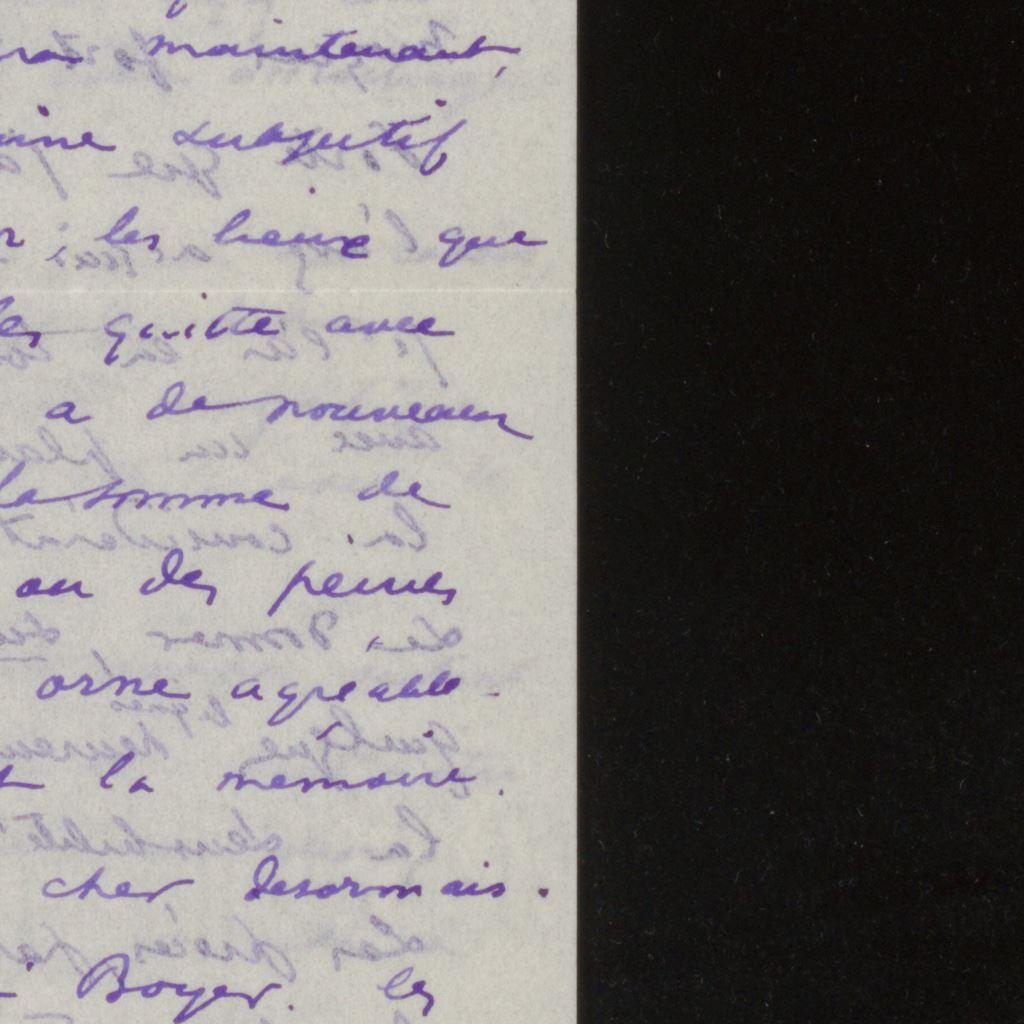 maintenant,
subjectif
les lieux que
les quitte avec
a de nouveaux
la somme de
ou des peines
orne agreable
la memoire.
cher desormais.
Boyer. les